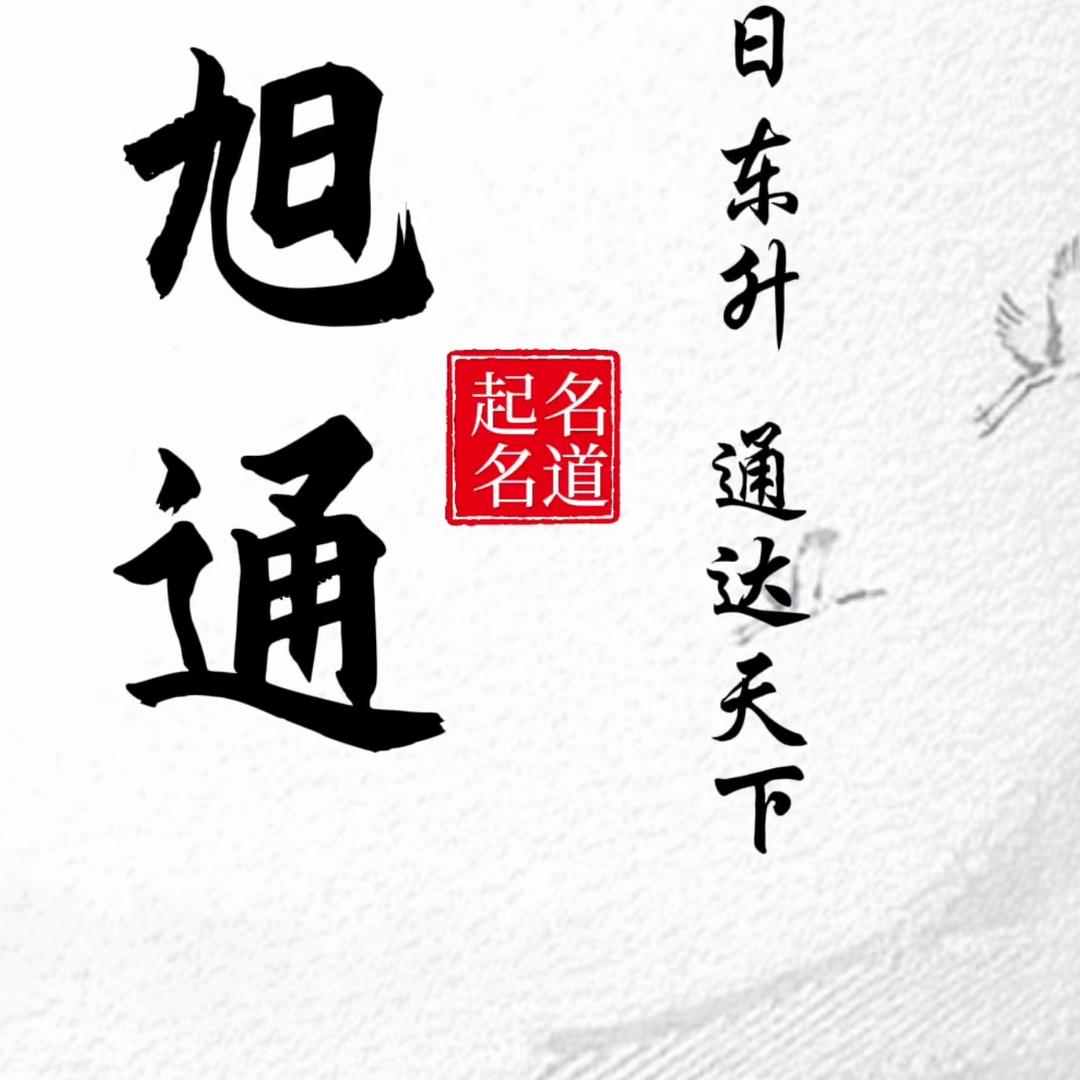 日东升 通达天下
名道
起名
旭通